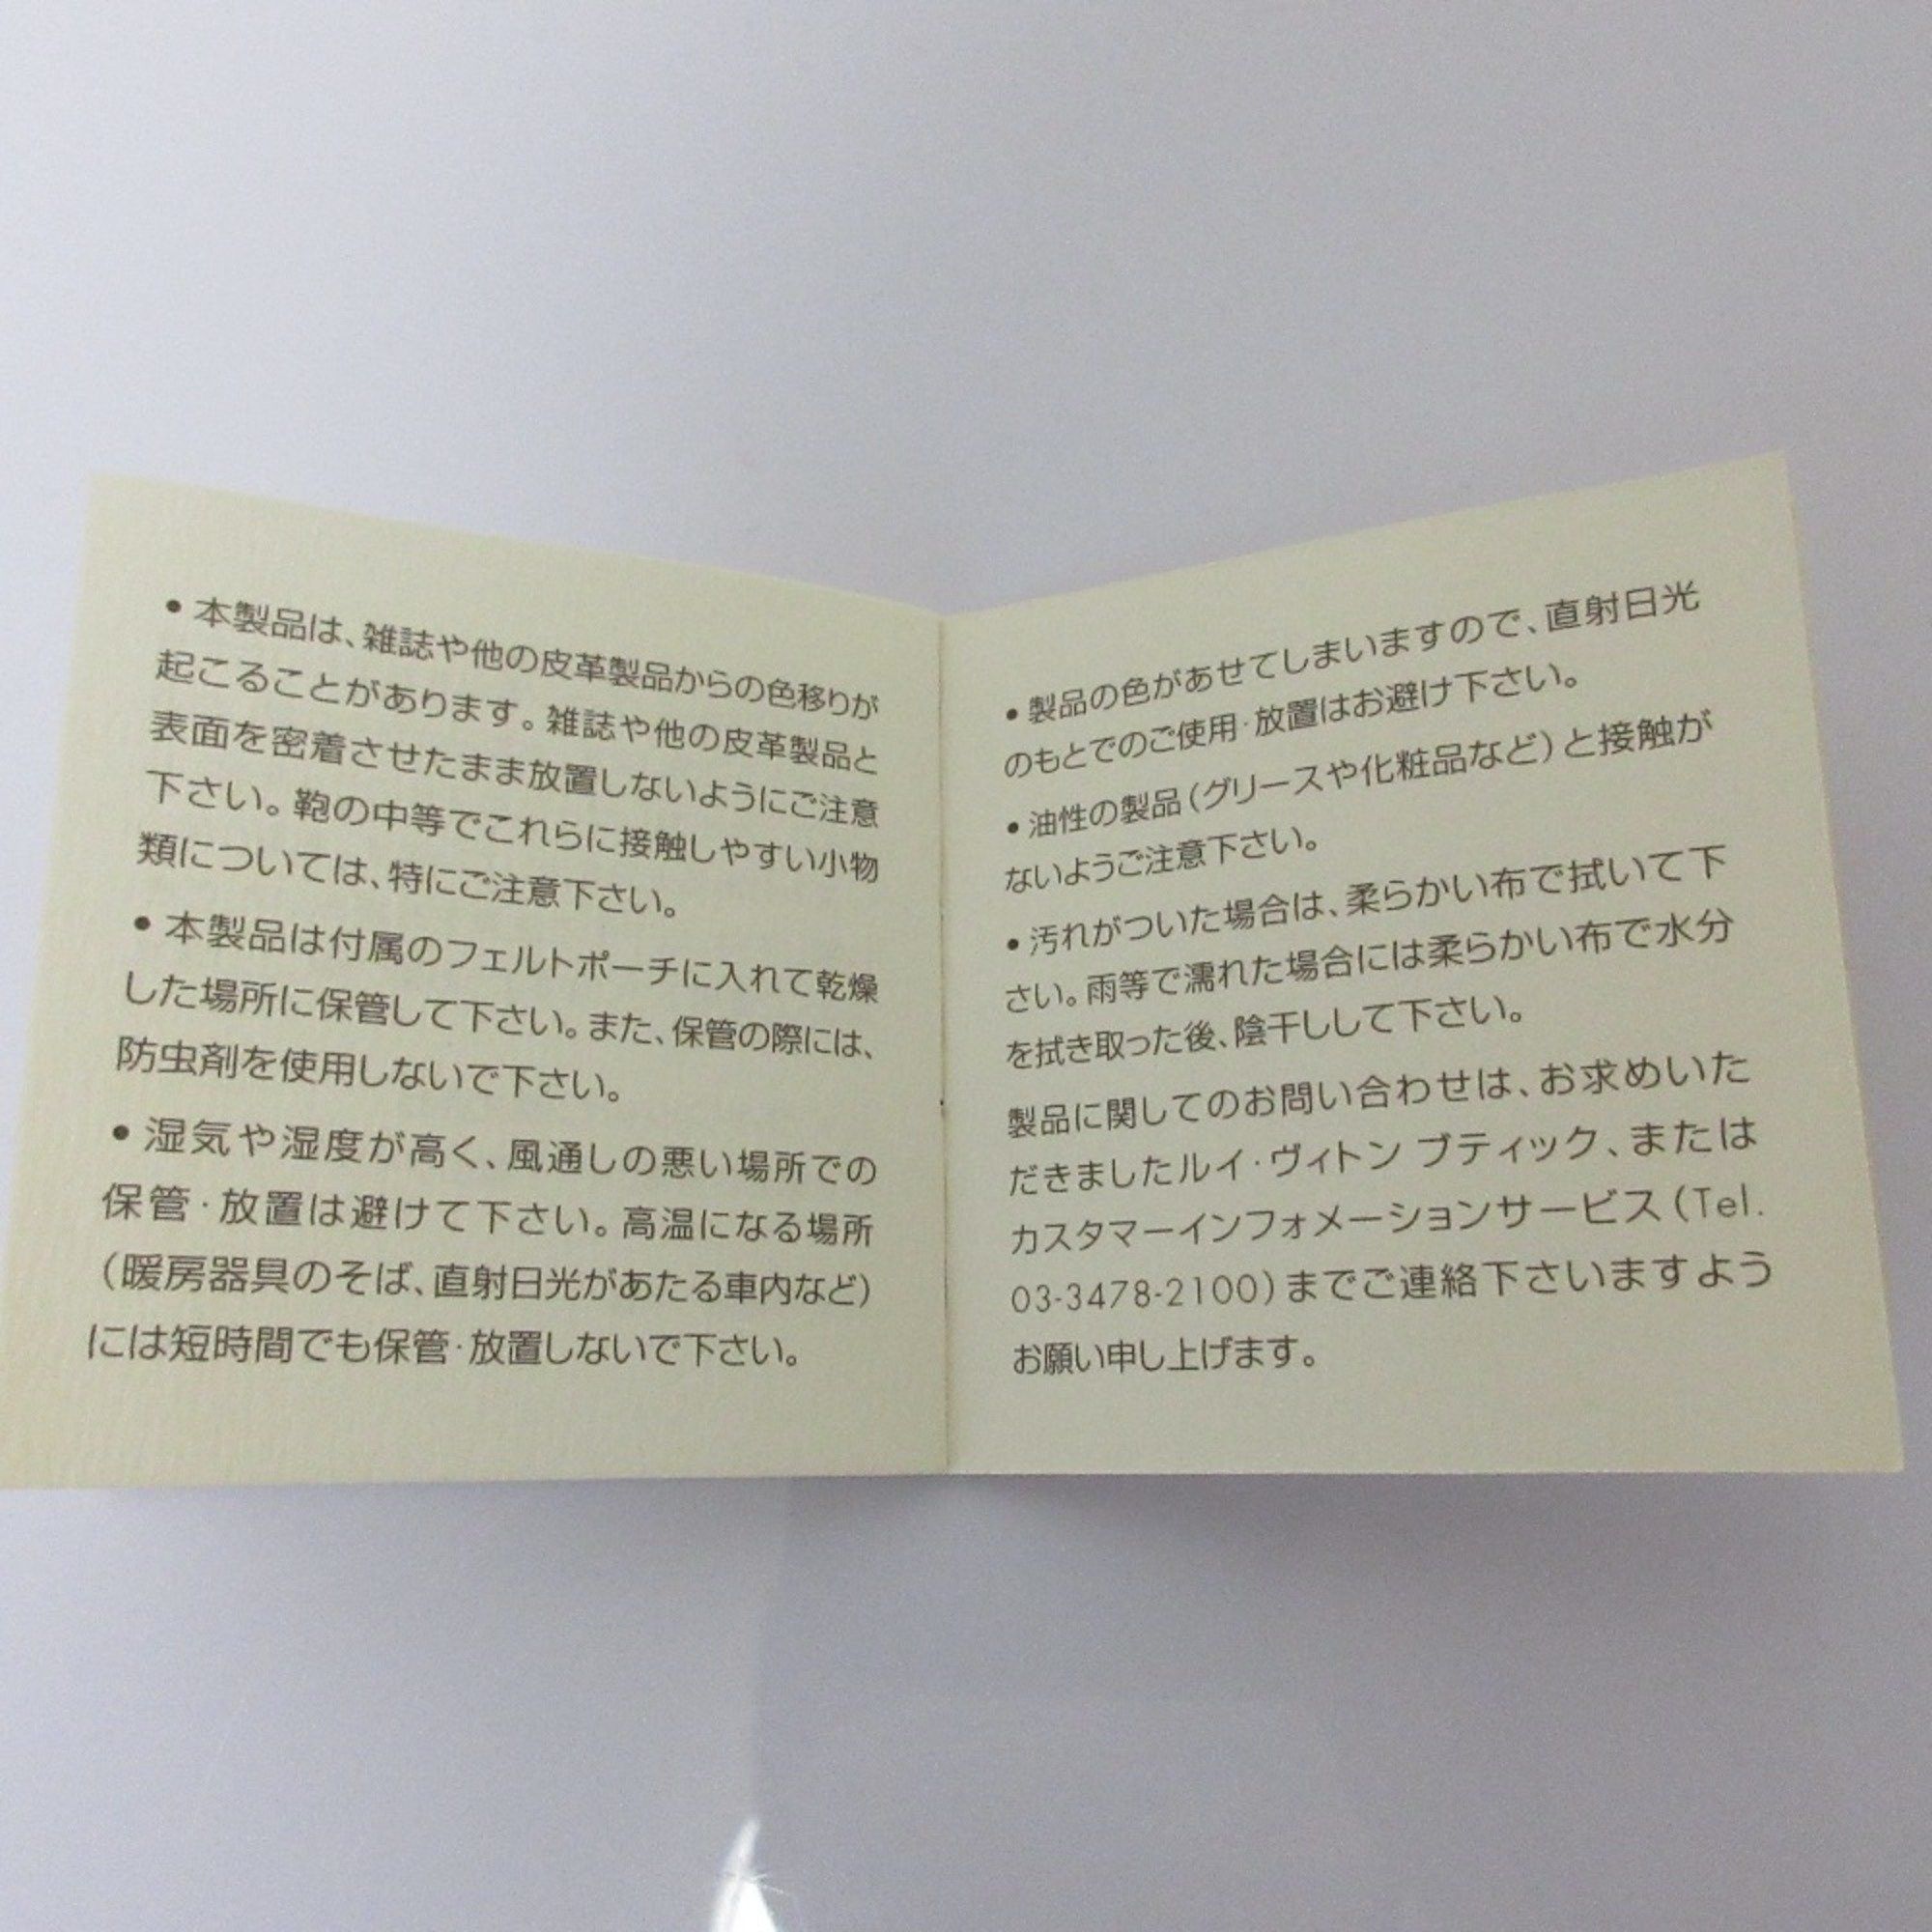 • 本製品は、雑誌や他の皮革製品からの色移りが
起こることがあります。雑誌や他の皮革製品と
表面を密着させたまま放置しないようにご注意
下さい。鞄の中等でこれらに接触しやすい小物
類については、特にご注意下さい。
• 本製品は付属のフェルトポーチに入れて乾燥
した場所に保管して下さい。また、保管の際には、
防虫剤を使用しないで下さい。
• 湿気や湿度が高く、風通しの悪い場所での
保管·放置は避けて下さい。高温になる場所
（暖房器具のそば、直射日光があたる車内など）
には短時間でも保管·放置しないで下さい。
• 製品の色があせてしまいますので、直射日光
のもとでのご使用·放置はお避け下さい。
• 油性の製品（グリースや化粧品など）と接触が
ないようご注意下さい。
• 汚れがついた場合は、柔らかい布で拭いて下
さい。雨等で濡れた場合には柔らかい布で水分
を拭き取った後、陰干しして下さい。
製品に関してのお問い合わせは、お求めいた
だきましたルイ·ヴィトン ブティック、または
カスタマーインフォメーションサービス（Tel.
03-3478-2100）までご連絡下さいますよう
お願い申し上げます。